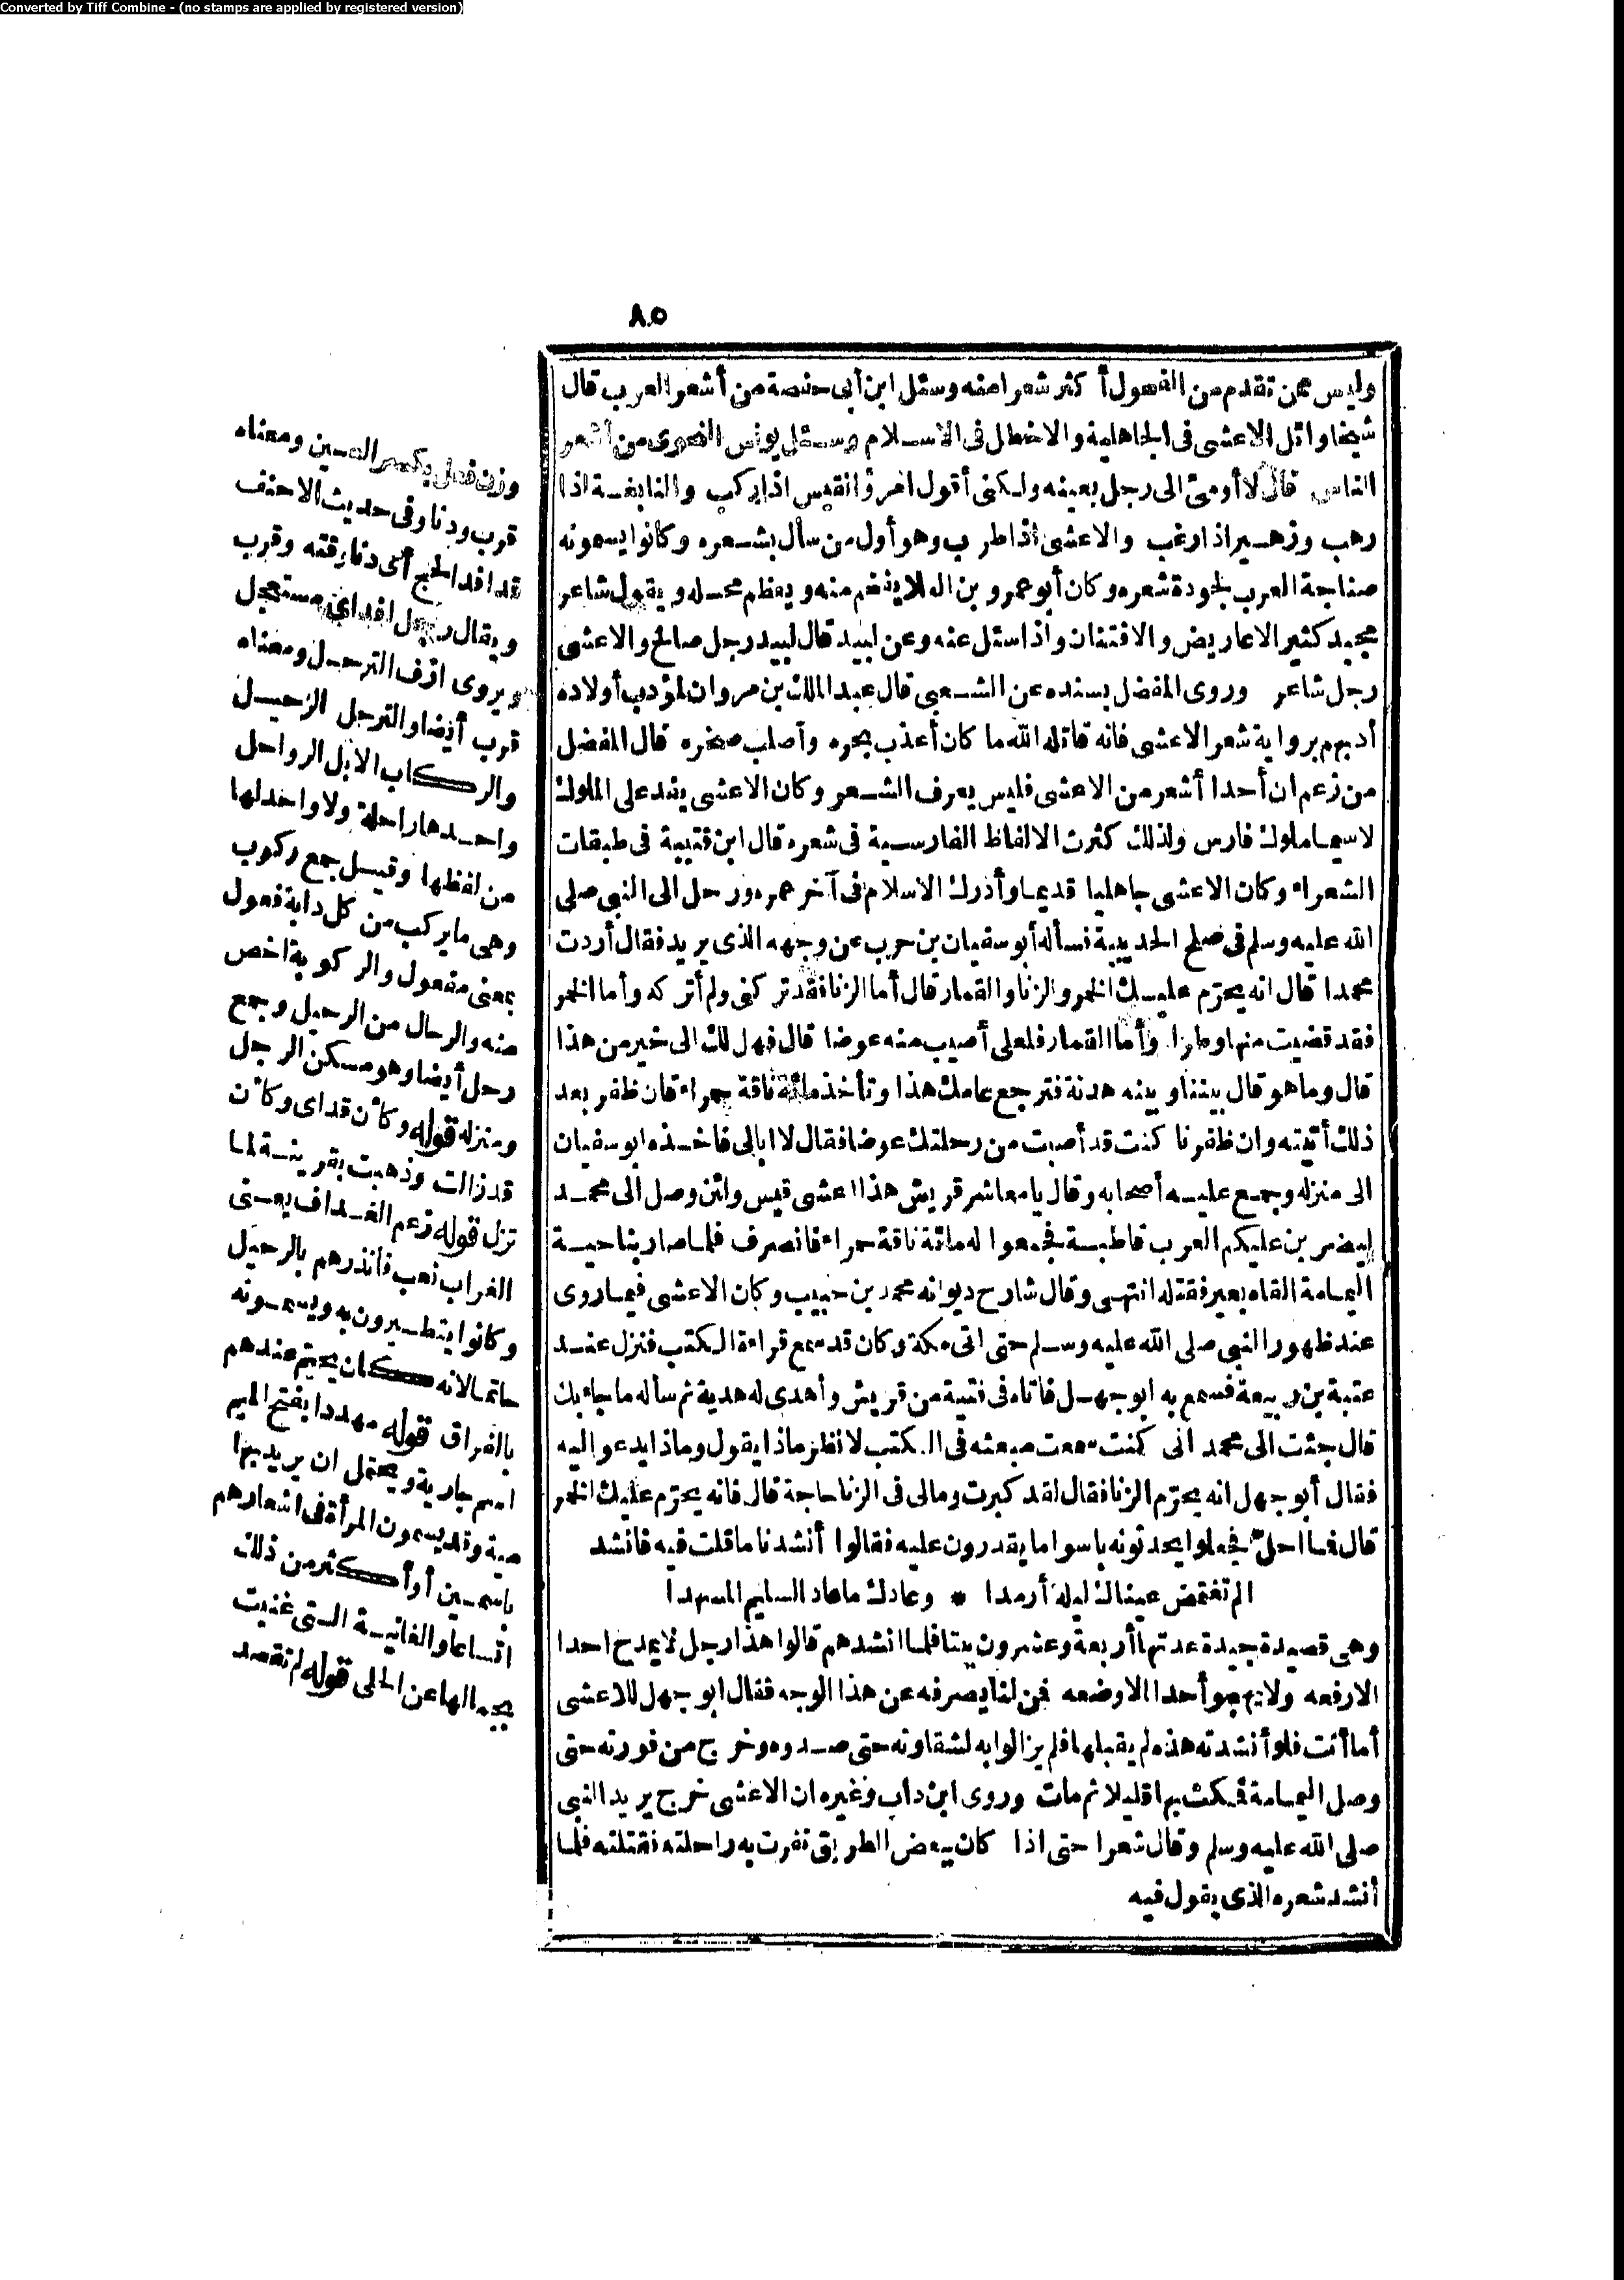 Converted by Tiff Combine - (no stamps are applied by registered version)
٨٥
وليس ممن تقدم من الفحول أكثر شعرا منه وسئل ابن أبى حفصة من أشعر العرب قال
شيخا وائل الاعشى فى الجاهلية والاخطل فى الاسلام وسئل يونس النحوى من أشعر
الناس قال لا أومئ الى رجل بعينه ولكنى أقول امرؤ القيس اذا ركب والنابغة اذا
رهب وزهير اذا رغب والاعشى اذا طرب وهو أول من سأل بشعره وكانوا يسمونه
صناجة العرب لجودة شعره وكان أبو عمرو بن العلا يفخم منه ويعظم محله ويقول شاعر
مجيد كثير الاعاريض والافتنان واذا سئل عنه وعن لبيد قال لبيد رجل صالح والاعشى
رجل شاعر وروى المفضل بسنده عن الشعبى قال عبد الملك بن مروان لمؤدب أولاده
أدبهم برواية شعر الاعشى فانه قاتله الله ما كان أعذب بحره وأصلب صخره قال المفضل
من زعم ان أحدا أشعر من الاعشى فليس يعرف الشعر وكان الاعشى يفد على الملوك
لاسيما ملوك فارس ولذلك كثرت الالفاظ الفارسية فى شعره قال ابن قتيبة فى طبقات
الشعراء وكان الاعشى جاهليا قديما وأدرك الاسلام فى آخر عمره ورحل الى النبى صلى
الله عليه وسلم فى صلح الحديبية فسأله أبو سفيان بن حرب عن وجهه الذى يريد فقال أردت
محمدا قال انه يحرّم عليك الخمر والزنا والقمار قال أما الزنا فقد تركنى ولم أتركه وأما الخمر
فقد قضيت منها وطرا وأما القمار فلعلى أصيب منه عوضا قال فهل لك الى خير من هذا
قال وما هو قال بيننا وبينه هدنة فترجع عامك هذا وتأخذ مائة ناقة حمراء فان ظفر بعد
ذلك أتيته وان ظفرنا كنت قد أصبت من رحلتك عوضا فقال لا ابالى فاخذه ابو سفيان
الى منزله وجمع عليه أصحابه وقال يا معاشر قريش هذا اعشى قيس ولئن وصل الى محمد
ليضربن عليكم العرب قاطبة فجمعوا له مائة ناقة حمراء فانصرف فلما صار بناحية
اليمامة القاه بعير فقتله انتهى وقال شارح ديوانه محمد بن حبيب وكان الاعشى فيما روى
عند ظهور النبى صلى الله عليه وسلم حتى اتى مكة وكان قد سمع قراءة الكتب فنزل عند
عتبة بن ربيعة فسمع به ابو جهل فاتاه فى فتية من قريش وأهدى له هدية ثم سأله ما جاء بك
قال جئت الى محمد انى كنت سمعت مبعثه فى الكتب لانظر ماذا يقول وماذا يدعو اليه
فقال أبو جهل انه يحرّم الزنا فقال لقد كبرت ومالى فى الزنا حاجة قال فانه يحرّم عليك الخمر
قال فما احلّ فجعلوا يحدثونه باسوا ما يقدرون عليه فقالوا أنشدنا ما قلت فيه فانشد
الم تغتمض عيناك ليلة أرمدا * وعادك ما عاد السليم المسهدا
وهى قصيدة جيدة عدتها أربعة وعشرون بيتا فلما انشدهم قالوا هذا رجل لا يمدح احدا
الا رفعه ولا يهجو أحدا الا وضعه فمن لنا يصرفه عن هذا الوجه فقال ابو جهل للاعشى
أما أنت فلو أنشدته هذه لم يقبلها فلم يزالوا به لشقاوته حتى صدوه وخرج من فورته حتى
وصل اليمامة فمكث بها قليلا ثم مات وروى ابن داب وغيره ان الاعشى خرج يريد النبى
صلى الله عليه وسلم وقال شعرا حتى اذا كان ببعض الطريق نفرت به راحلته فقتلته فلما
أنشد شعره الذى يقول فيه
وزن فعل بكسر العين ومعناه
قرب ودنا وفى حديث الاحنف
قد افد الحج أى دنا وقته وقرب
ويقال رجل افد اى مستعجل
ويروى ازف الترحل ومعناه
قرب أيضا والترجل الرحيل
والركاب الابل الرواحل
واحدها راحلة ولا واحد لها
من لفظها وقيل جمع ركوب
وهى ما يركب من كل دابة فعول
بمعنى مفعول والركوبة اخص
منه والرحال من الرحيل وجمع
رحل أيضا وهو مسكن الرجل
ومنزله قوله وكأن قد اى وكأن
قد زالت وذهبت بقرينة لما
تزل قوله زعم الغداف يعنى
الغراب نعب فانذرهم بالرحيل
وكانوا يتطيرون به ويسمونه
حاتما لانه كان يحتم عندهم
بالفراق قوله مهددا بفتح الميم
اسم جارية ويحتمل ان يريد بها
مية وقد يسمون المرأة فى اشعارهم
باسمين أو أكثر من ذلك
اتساعا والغانية التى غنيت
بجمالها عن الحلى قوله لم تقصد